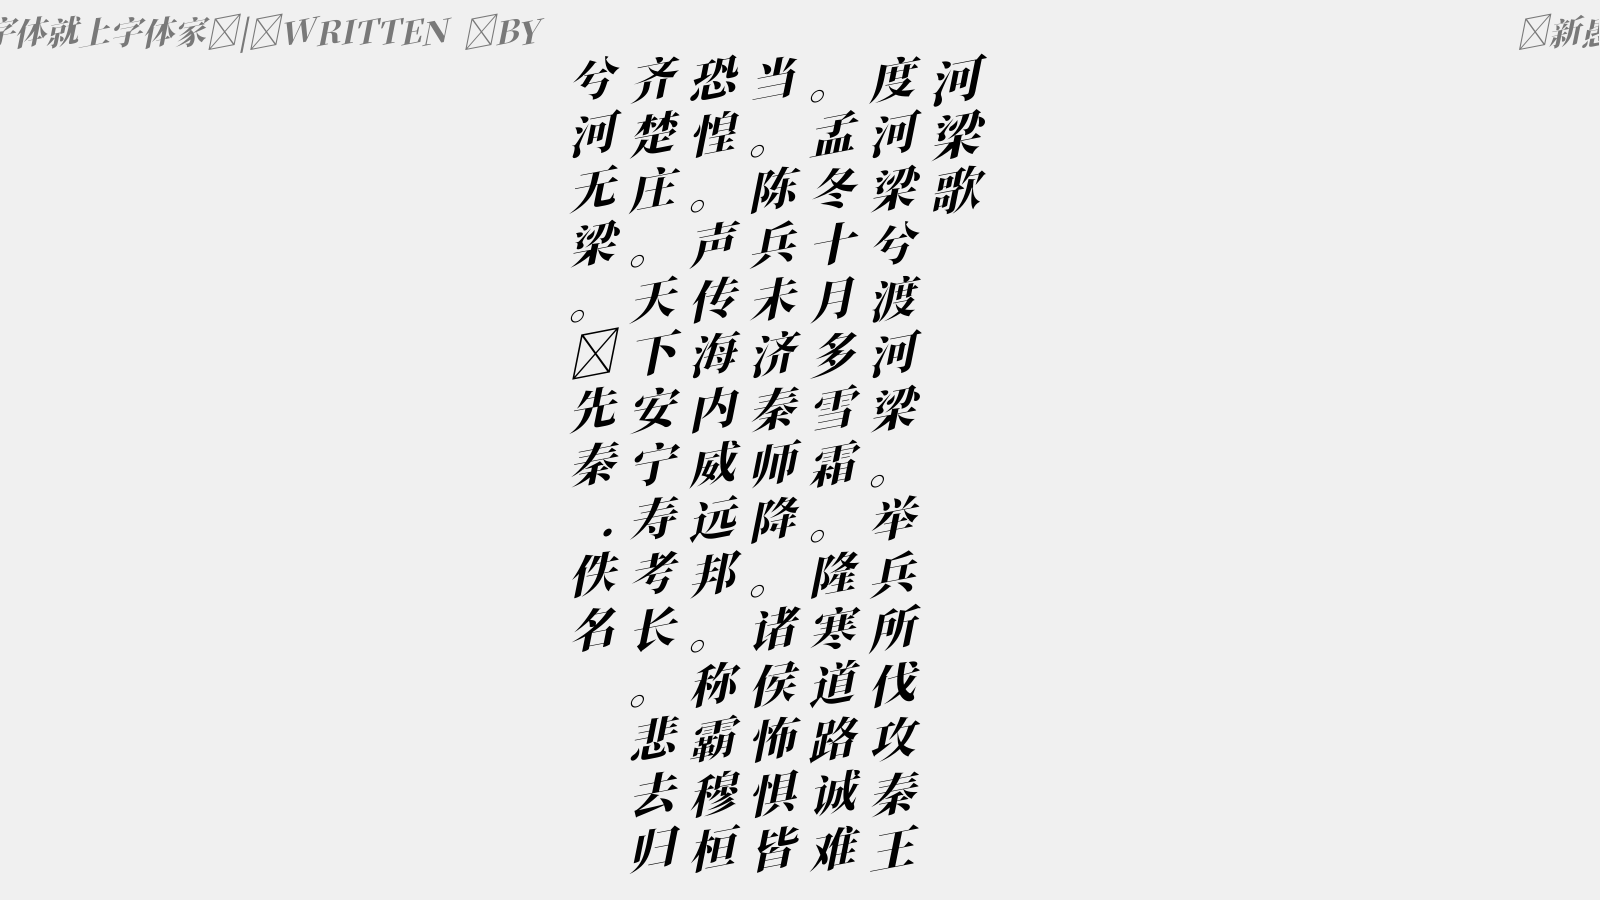 字体就上字体家|WRITTEN BY
新愚
河梁歌
度河梁兮渡河梁。举兵所伐攻秦王
。孟冬十月多雪霜。隆寒道路诚难
当。陈兵未济秦师降。诸侯怖惧皆
恐惶。声传海内威远邦。称霸穆桓
齐楚庄。天下安宁寿考长。悲去归
兮河无梁。先秦．佚名